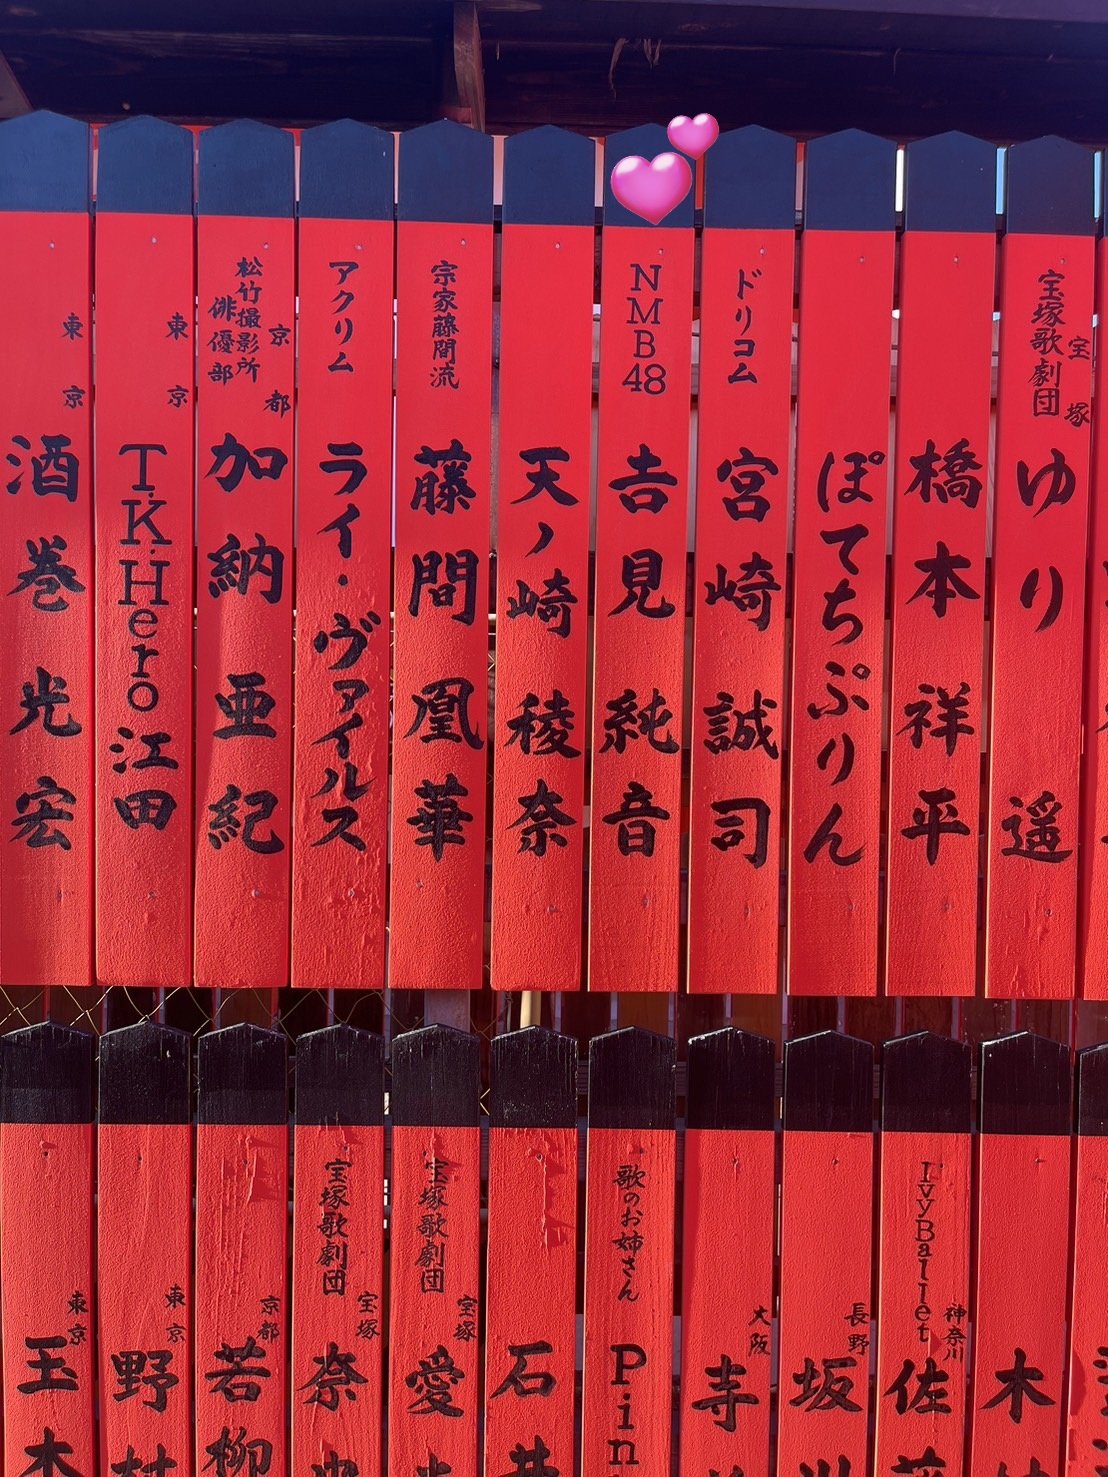 宝塚歌劇団
宝塚
ゆり 遥
橋本祥平
ぽてちぷりん
ドリコム
宮崎誠司
NMB48
吉見純音
天ノ崎稜奈
宗家藤間流
藤間凰華
アクリム
ライ・ヴァイルス
京都
松竹撮影所
俳優部
加納亜紀
東京
T.K.Hero江田
東京
酒巻光宏
木
神奈川
IvyBallet
佐
長野
坂
大阪
寺
歌のお姉さん
Pin
石井
宝塚
宝塚歌劇団
愛
宝塚
宝塚歌劇団
奈
京都
若柳
東京
野村
東京
玉木